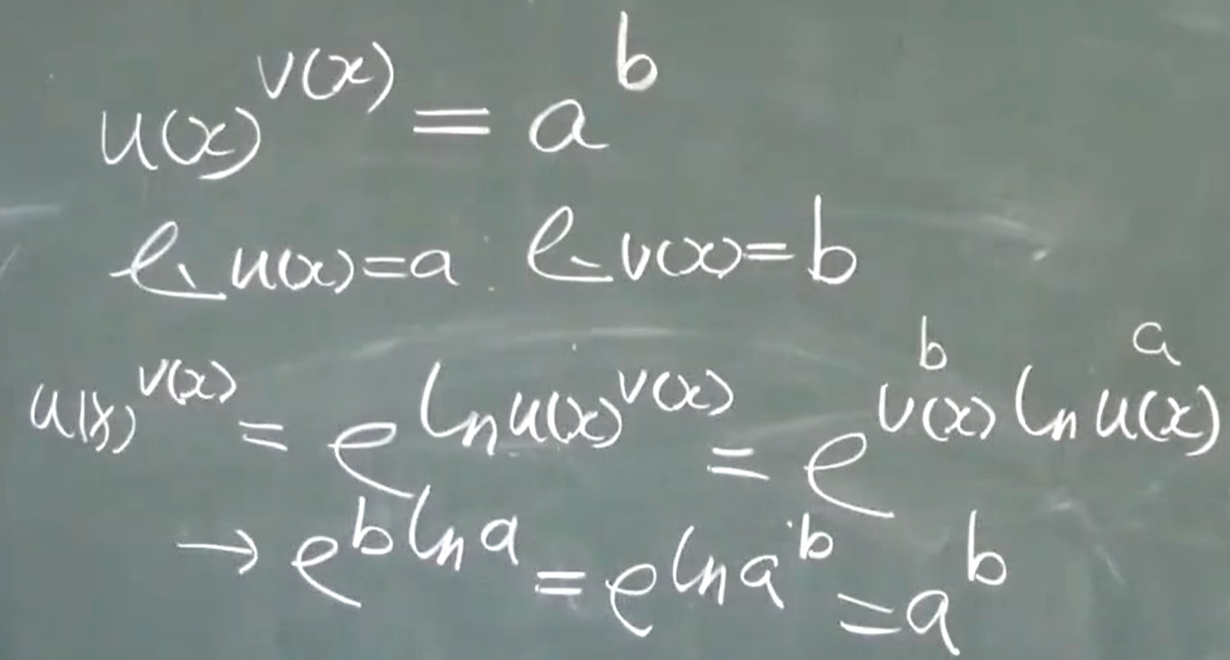 u(x)^{v(x)} = a^b
lim u(x) = a . lim v(x) = b
b a
u(x)^{v(x)} = e^{ln u(x)^{v(x)}} = e^{v(x) ln u(x)}
→ e^{b ln a} = e^{ln a^b} = a^b